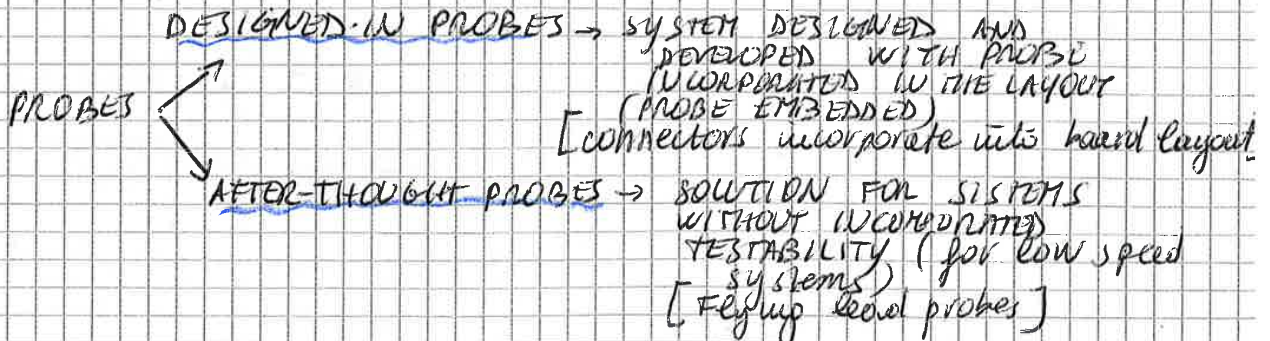 DESIGNED-IN PROBES → SYSTEM DESIGNED AND
DEVELOPED WITH PROBE
INCORPORATED IN THE LAYOUT
(PROBE EMBEDDED)
PROBES
[connectors incorporate into board layout
AFTER-THOUGHT PROBES → SOLUTION FOR SISTEMS
WITHOUT INCORPORATED
TESTABILITY (for low speed
systems)
[Flying lead probes]